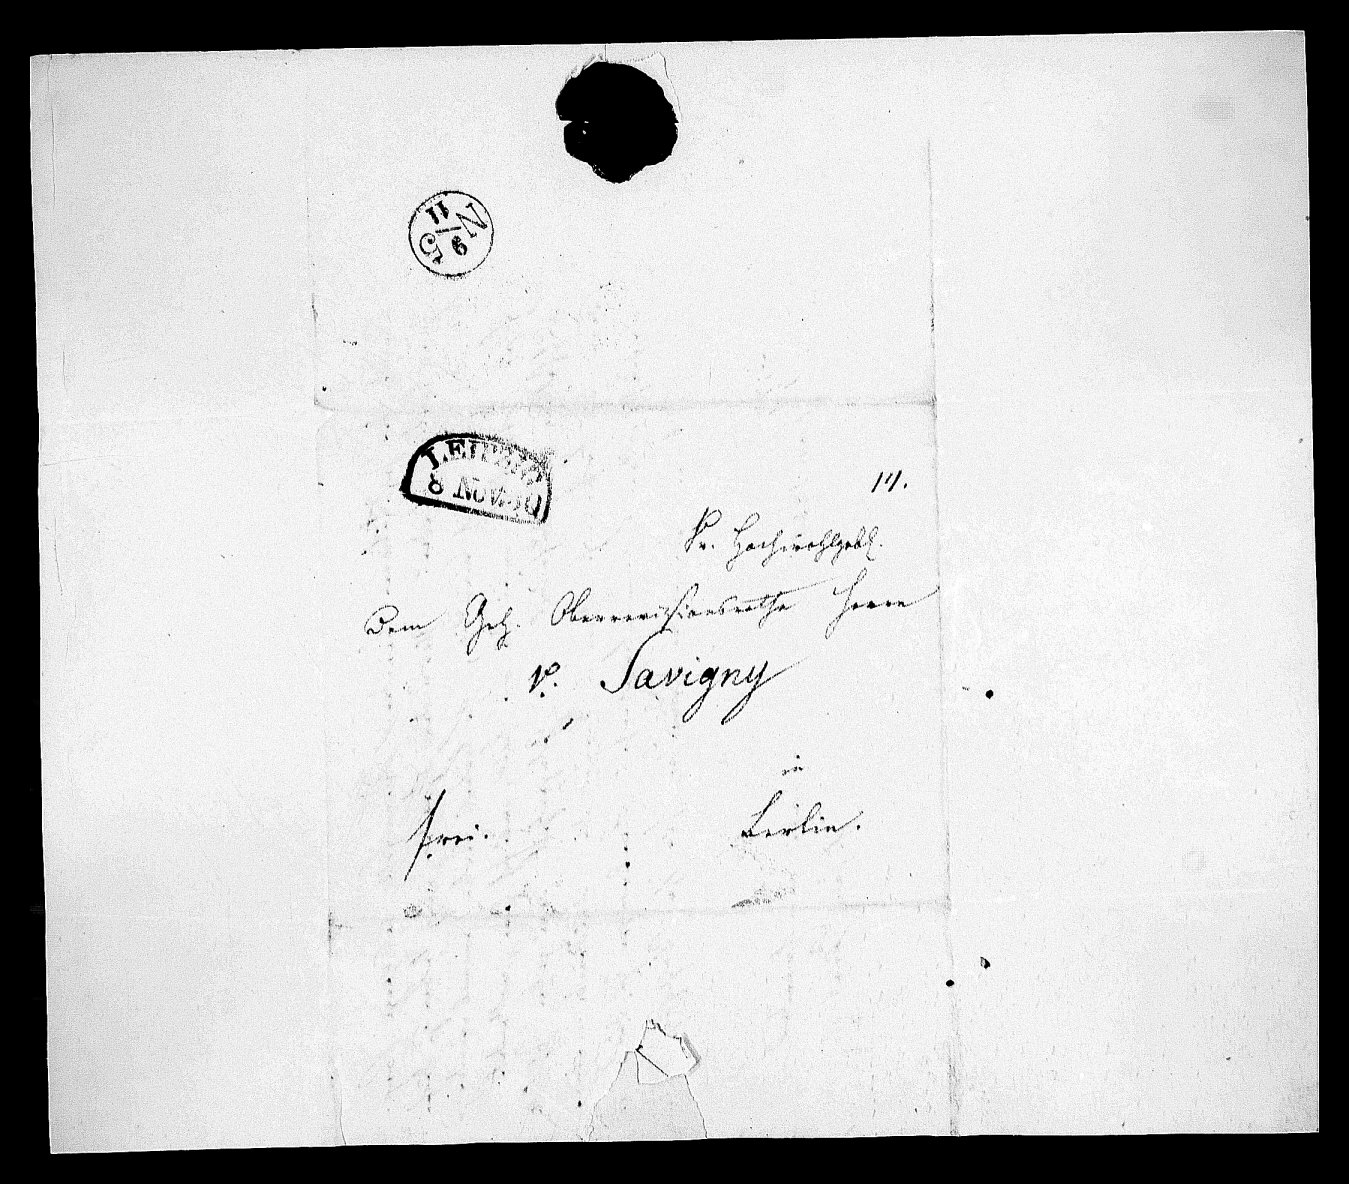 N 5
11
9
LEIPZIG
8 Nov. 40
14.
Sr. Hochwohlgebl.
Dem Geh. Oberrevisionsrathe Herrn
v. Savigny
in
frei.
Berlin.